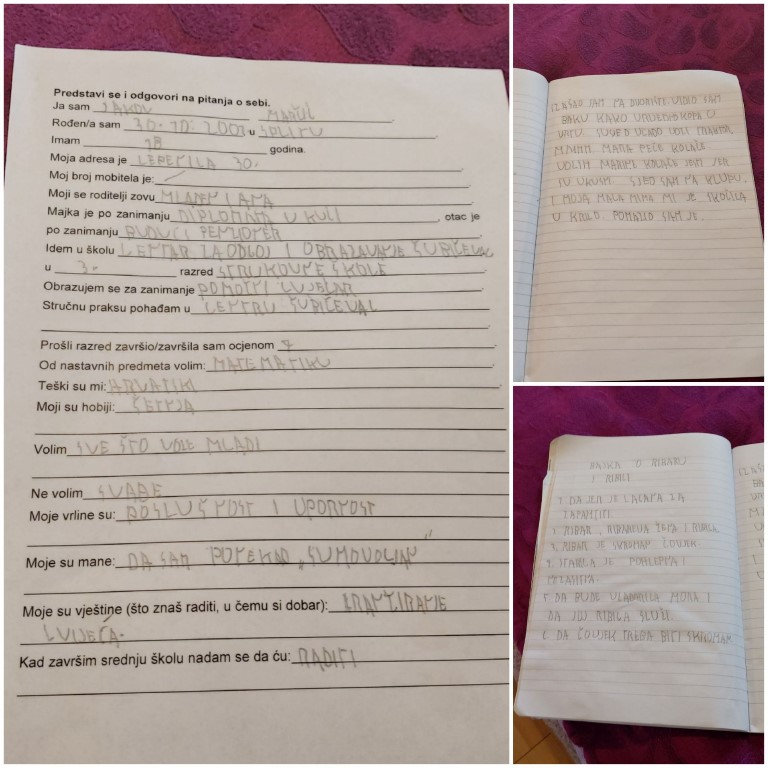 Predstavi se i odgovori na pitanja o sebi.
Ja sam JAKOV MARUL
Rođen/a sam 30. 10. 2003 u SPLITU
Imam 18 godina.
Moja adresa je 30.
Moj broj mobitela je:
Moji se roditelji zovu MLADEN I ANA
Majka je po zanimanju DIPLOMATA U KULI, otac je
po zanimanju BUDUĆI PENZIONER
Idem u školu CENTAR ZA ODGOJ I OBRAZAVANJE ŠUBIĆEVAC
u 3. razred STRUKOVNE ŠKOLE
Obrazujem se za zanimanje POMOĆNI CVJEĆAR
Stručnu praksu pohađam u CENTRU ŠUBIĆEVAC
Prošli razred završio/završila sam ocjenom
Od nastavnih predmeta volim: MATEMATIKU
Teški su mi: HRVATIKI
Moji su hobiji: ŠETNJA
Volim SVE ŠTO VOLE MLADI
Ne volim SVAĐE
Moje vrline su: POSLUŠNOST I UPORNOST
Moje su mane: DA SAM PONEKAD „SVOJEVOLJAN"
Moje su vještine (što znaš raditi, u čemu si dobar): ARANŽIRANJE
CVIJEĆA.
Kad završim srednju školu nadam se da ću: RADITI
IZAŠAO SAM NA DVORIŠTE VIDIO SAM
BAKU KAKO U
VRTU. VOLI
MAMA PEČE KOLAČE.
VOLIM MAMINE KOLAČE
SU UKUSNI. SJEO SAM NA KLUPU.
I MOJA MALA MIMA MI JE SKOČILA
U KRILO. POMAZIO SAM JE.
BAJKA O RIBARU
I RIBICI
1. DA JEJ JE LAGANA ZA
ZAPAMTITI.
2. RIBAR, RIBAROVA ŽENA I RIBICA.
3. RIBAR JE SKROMAN ČOVJEK.
4. STARICA JE POHLEPNA I
5. DA BUDE VLADARICA MORA I
DA JOJ RIBICA SLUŽI.
6. DA ČOVJEK TREBA BITI SKROMAN.